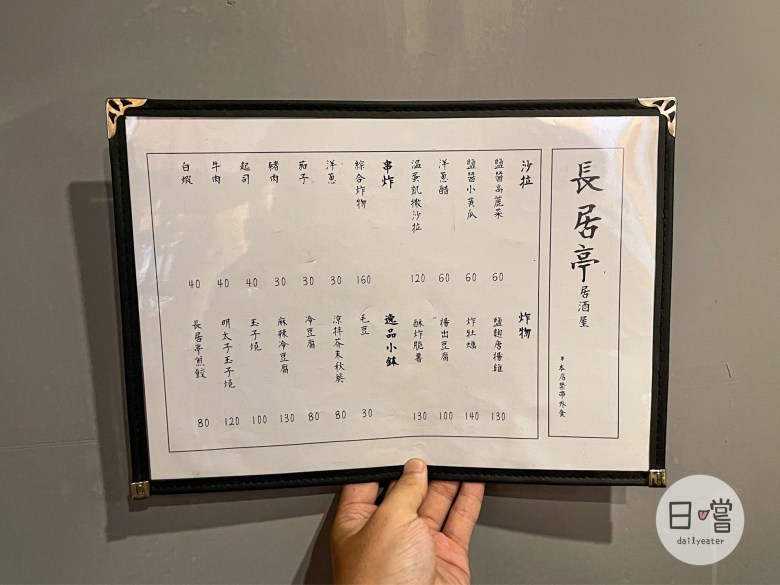 長居亭居酒屋
＊本店禁帶外食
沙拉
鹽醬高麗菜 60
鹽醬小黃瓜 60
洋蔥醋 60
溫蛋凱撒沙拉 120
串炸
綜合炸物 160
洋蔥 30
茄子 30
豬肉 30
起司 40
牛肉 40
白蝦 40
炸物
鹽麴唐揚雞 130
炸牡蠣 140
揚出豆腐 100
酥炸脆薯 130
逸品小缽
毛豆 30
涼拌芥末秋葵 80
冷豆腐 80
麻辣冷豆腐 130
玉子燒 100
明太子玉子燒 120
長居亭煎餃 80
日嚐
dailyeater